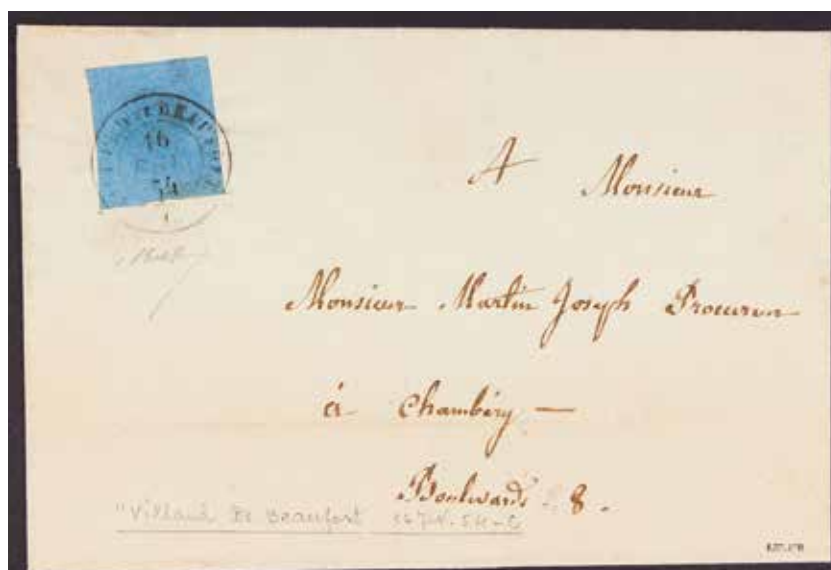 16
54
A Monsieur
Monsieur Martin Joseph Procureur
à Chambéry —
Boulevards 8.
"Villard de Beaufort